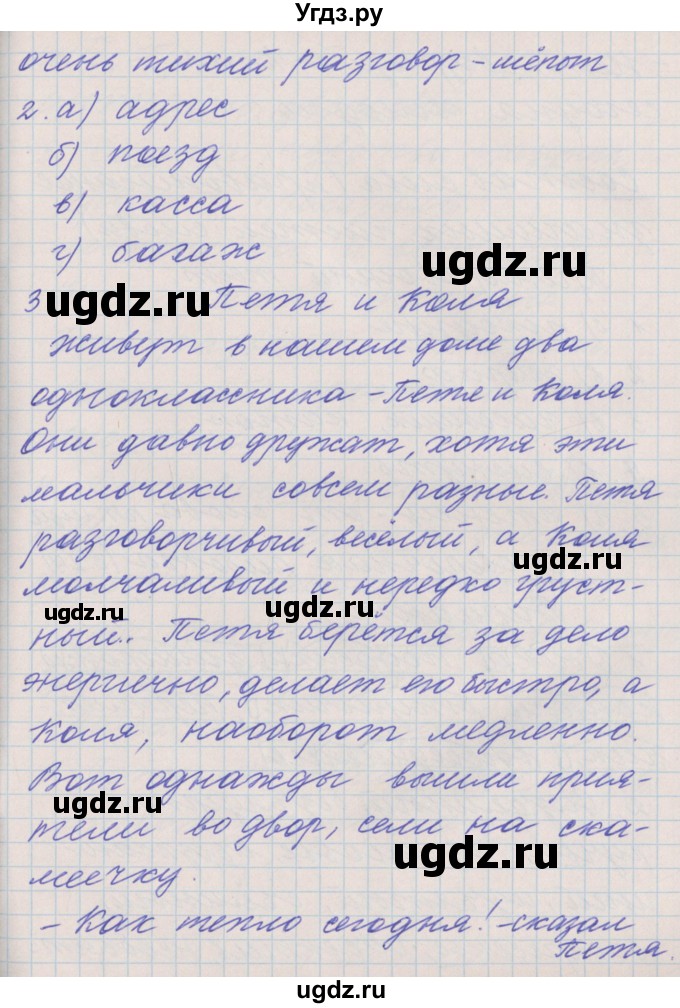 Угдз.ру
очень тихий разговор - шёпот
2. а) адрес
б) поезд
в) касса
г) багаж
ugdz.ru
3 ugdz.ru Петя и Коля
живут в нашем доме два
одноклассника - Петя и Коля.
Они давно дружат, хотя эти
мальчики совсем разные. Петя
разговорчивый, весёлый, а Коля
ugdz.ru
молчаливый и нередко груст-
ugdz.ru ugdz.ru
ный. Петя берётся за дело
энергично, делает его быстро, а
Коля, наоборот медленно.
Вот однажды вышли прия-
ugdz.ru
тели во двор, сели на ска-
ugdz.ru
меечку.
- Как тепло сегодня! - сказал
Петя.
ugdz.ru